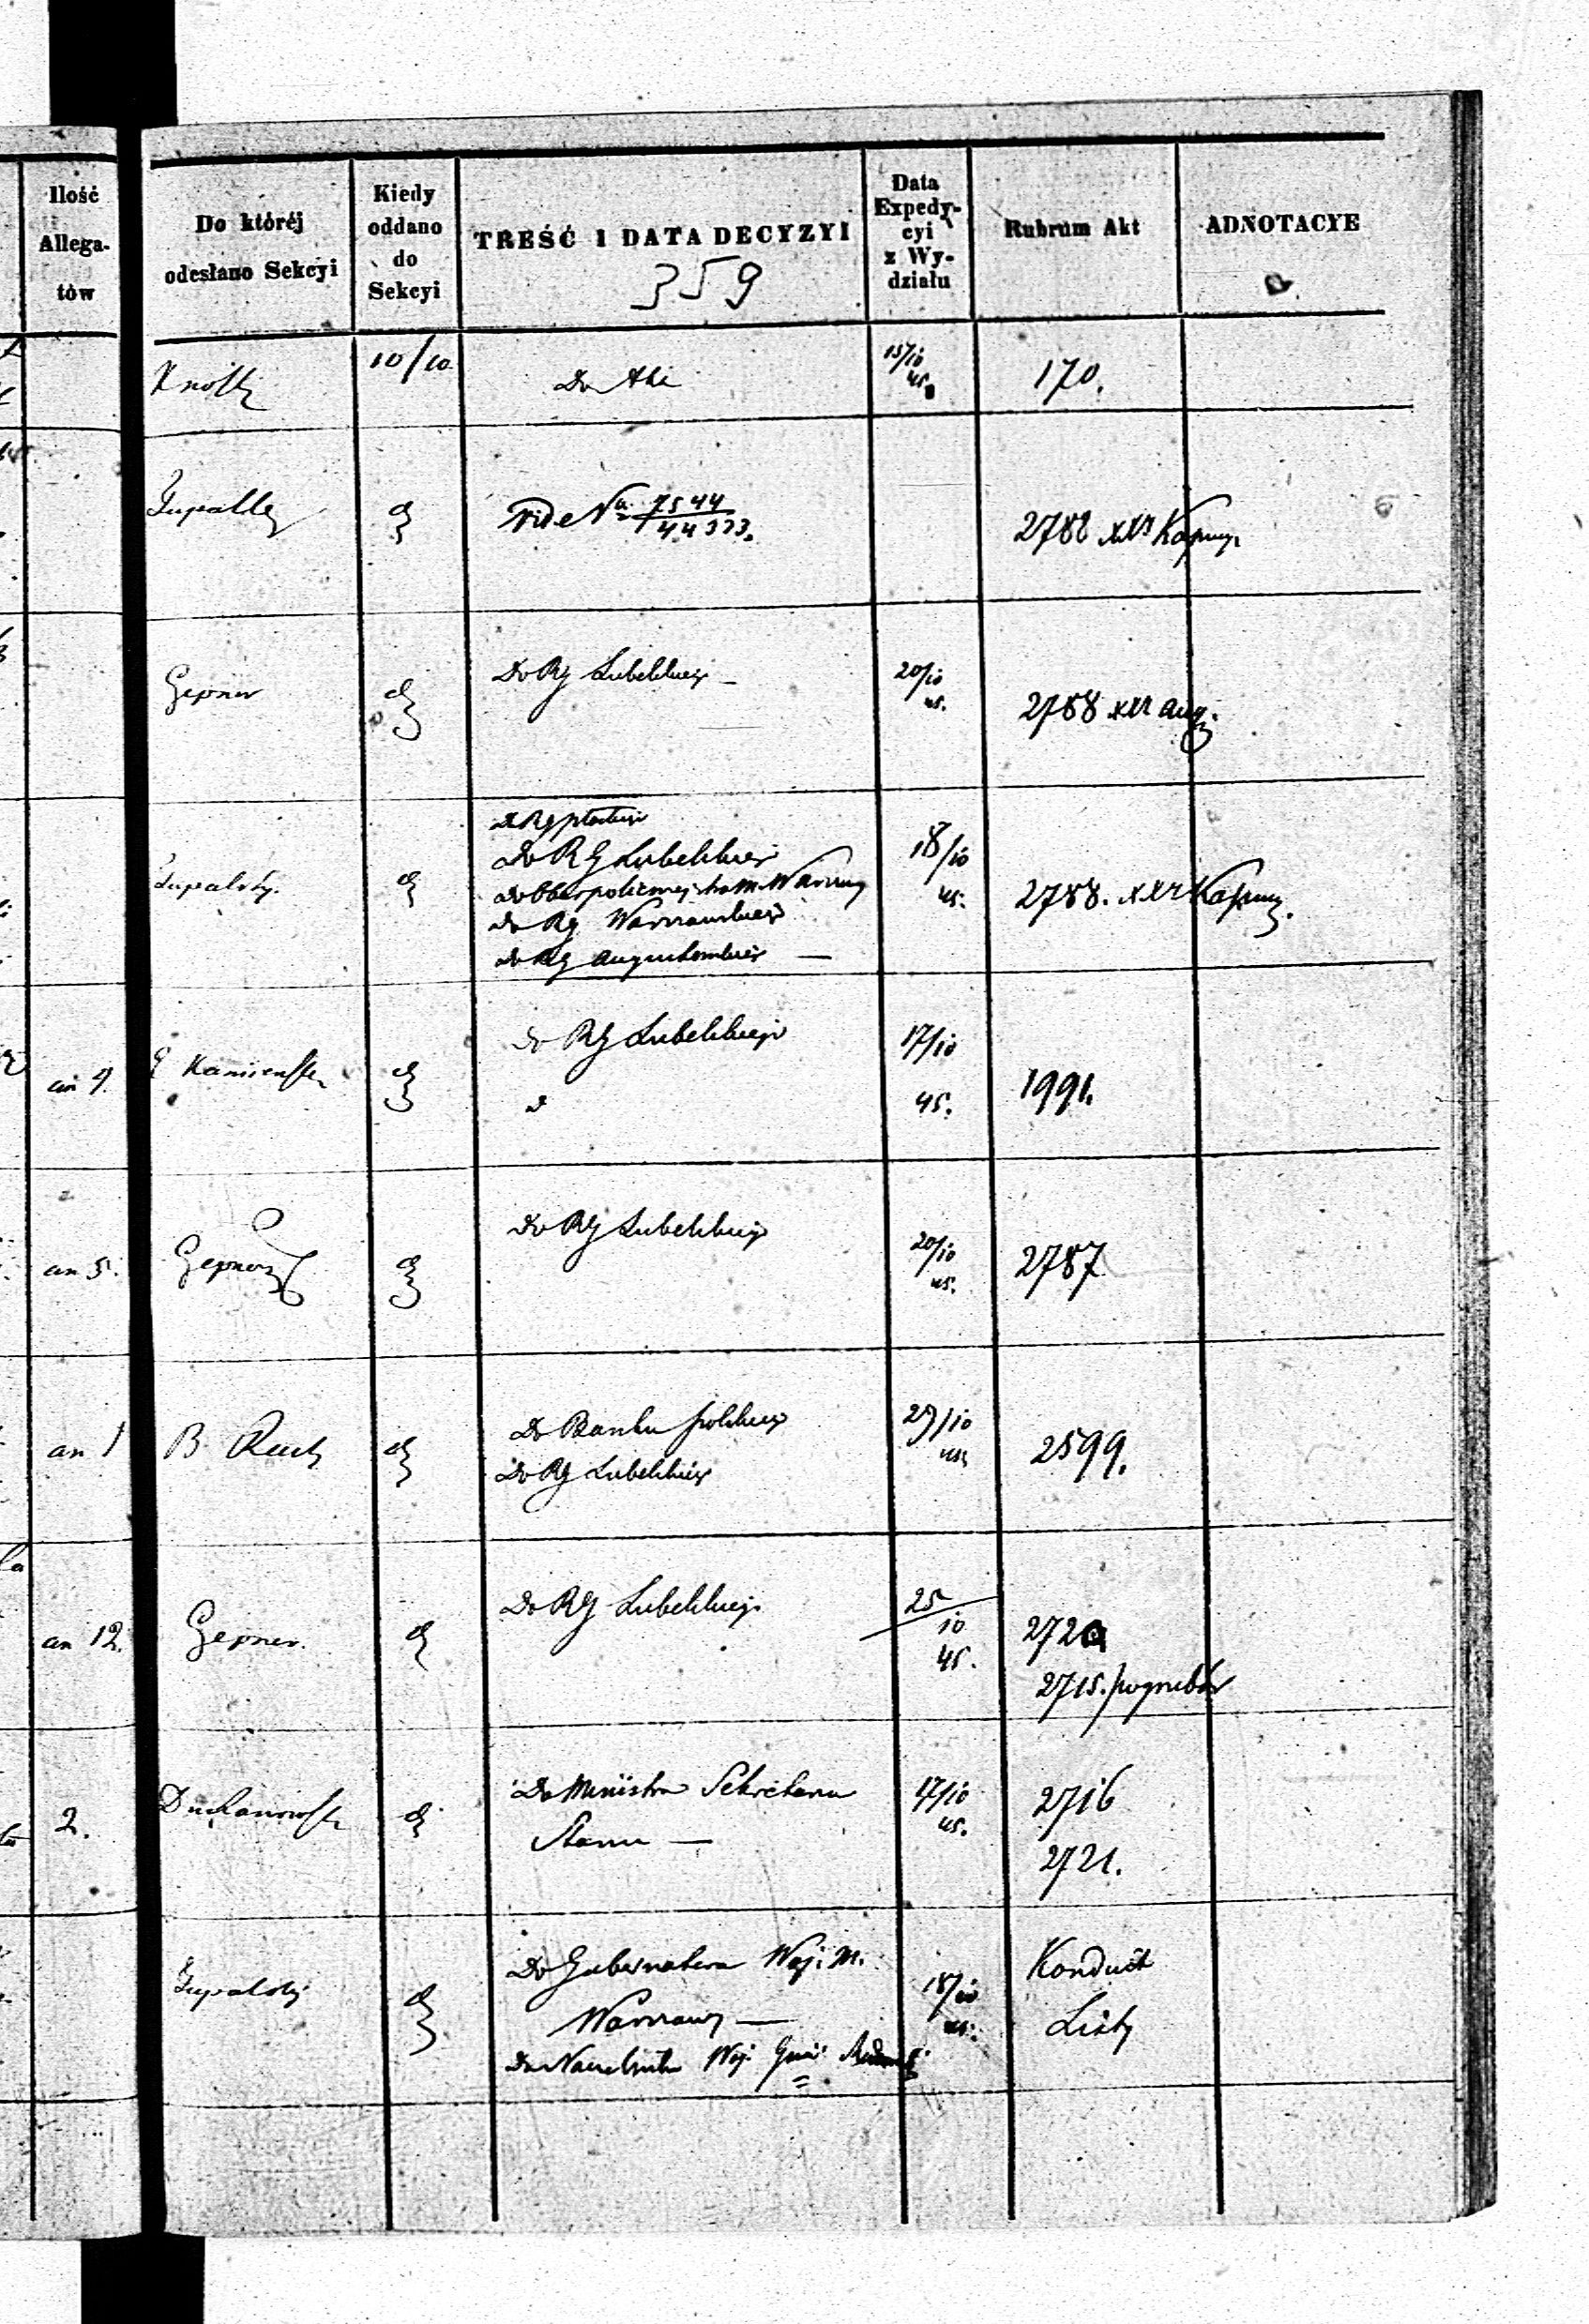 Ilość
Allega-
tów
Do któréj
odesłano Sekcyi
Kiedy
oddano
do
Sekcyi
TREŚĆ I DATA DECYZYI
359
Data
Expedy-
cyi
z Wy-
działu
Rubrum Akt
ADNOTACYE
10/10
Do Akt
15/10
45.
170.
Vide Nr 7544
44373.
2788 XXr Kapucy.
Gepner
Do RG Lubelskiego —
20/10
45.
2788 XXr Aug.
Do RG Lubelskiego
Do Oberpolicmejstra M. Warszawy
Do RG Warszawskiego
Do RG Augustowskiego —
18/10
45.
2788. XXr Kapucy.
an 4.
Kamieński
Do RG Lubelskiego
17/10
45.
1991.
an 5.
Gepner
Do RG Lubelskiego
20/10
45.
2787
an 1
B
Do Banku polskiego
Do RG Lubelskiego
29/10
45
2599.
an 12.
Gepner.
Do RG Lubelskiego
25
10
45.
2720
2715.
2.
Duchanowski
Do Ministra Sekretarza
Stanu —
17/10
45.
2716
2721.
Do Gubernatora Woj. M.
Warszawy —
Do Naczelnika Woj. Gub.
18/10
45.
Konduit
Listy